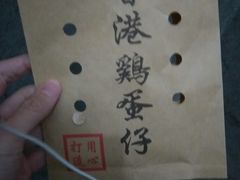 香港鷄蛋仔
用心
打造